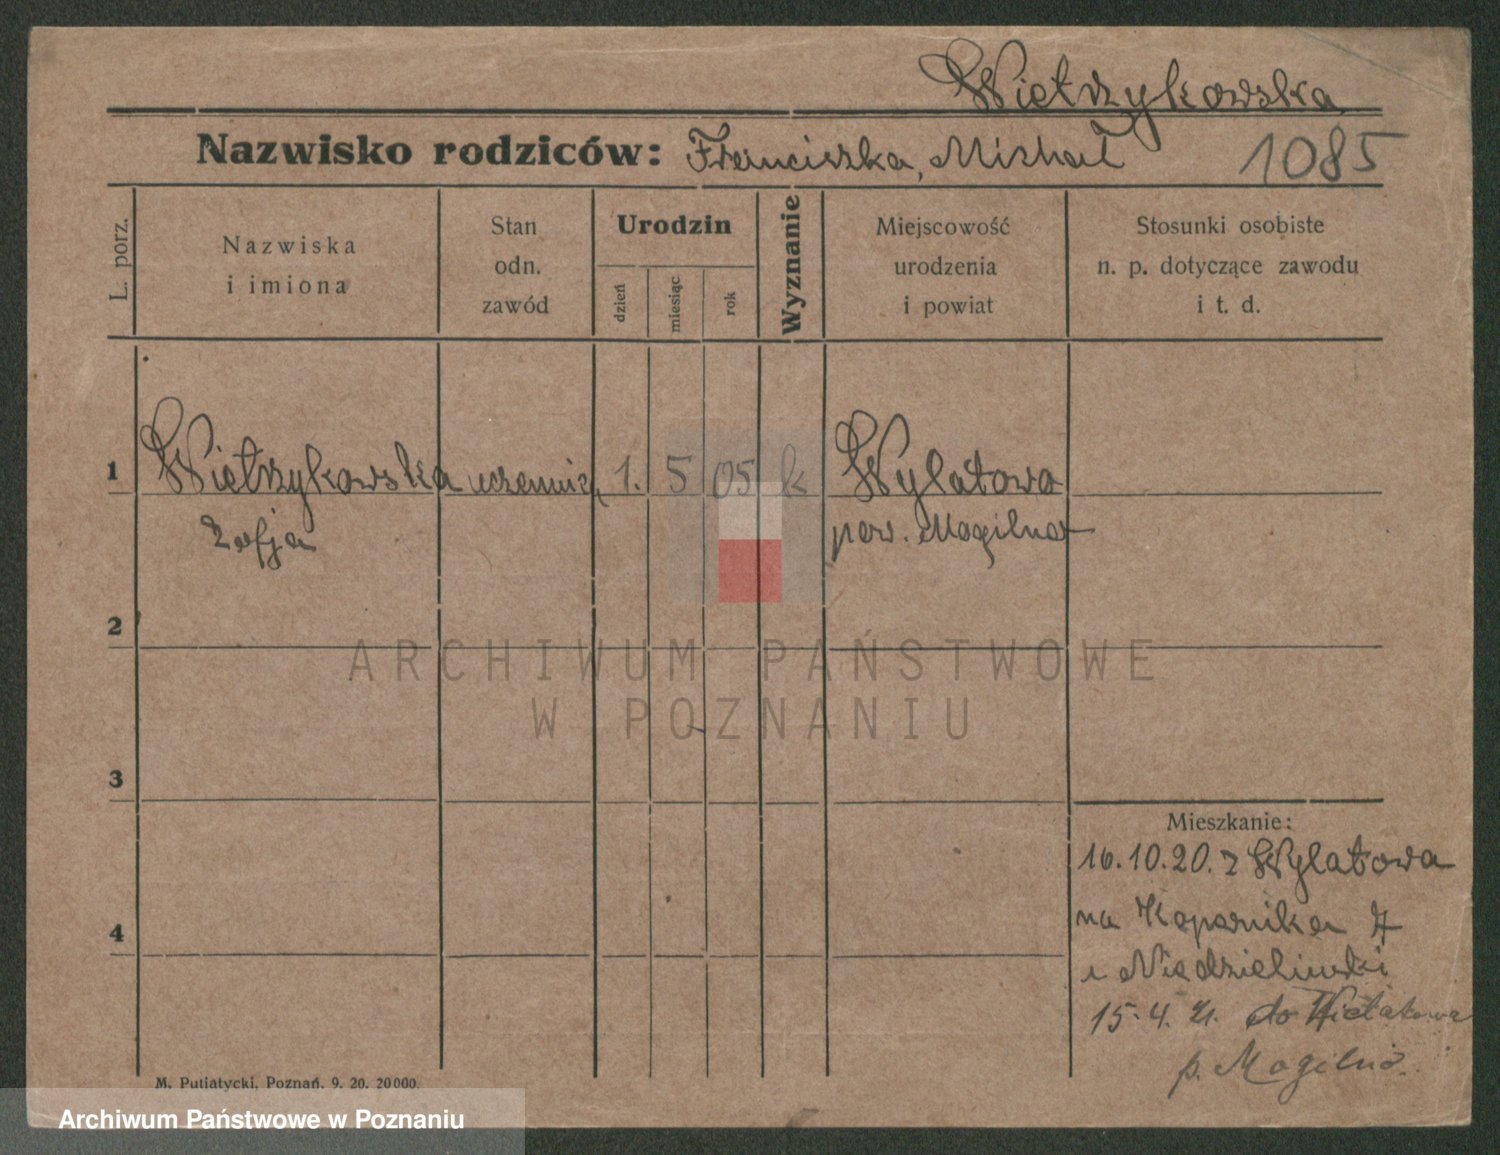 Wietrzykowska
Nazwisko rodziców: Franciszka, Michał
1085
L. porz.
Nazwiska
i imiona
Stan
odn.
zawód
Urodzin
dzień
miesiąc
rok
Wyznanie
Miejscowość
urodzenia
i powiat
Stosunki osobiste
n. p. dotyczące zawodu
i t. d.
1 Wietrzykowska uczennica 1. 5 05 k Wylatowo
Zofja pow. Mogilno
2
ARCHIWUM PAŃSTWOWE
W POZNANIU
3
Mieszkanie:
16.10.20. z Wylatowa
na Kopernika 7
4
u Niedzielinski
15.4.21. do
p. Mogilno.
M. Putiatycki, Poznań. 9. 20. 20000.
Archiwum Państwowe w Poznaniu